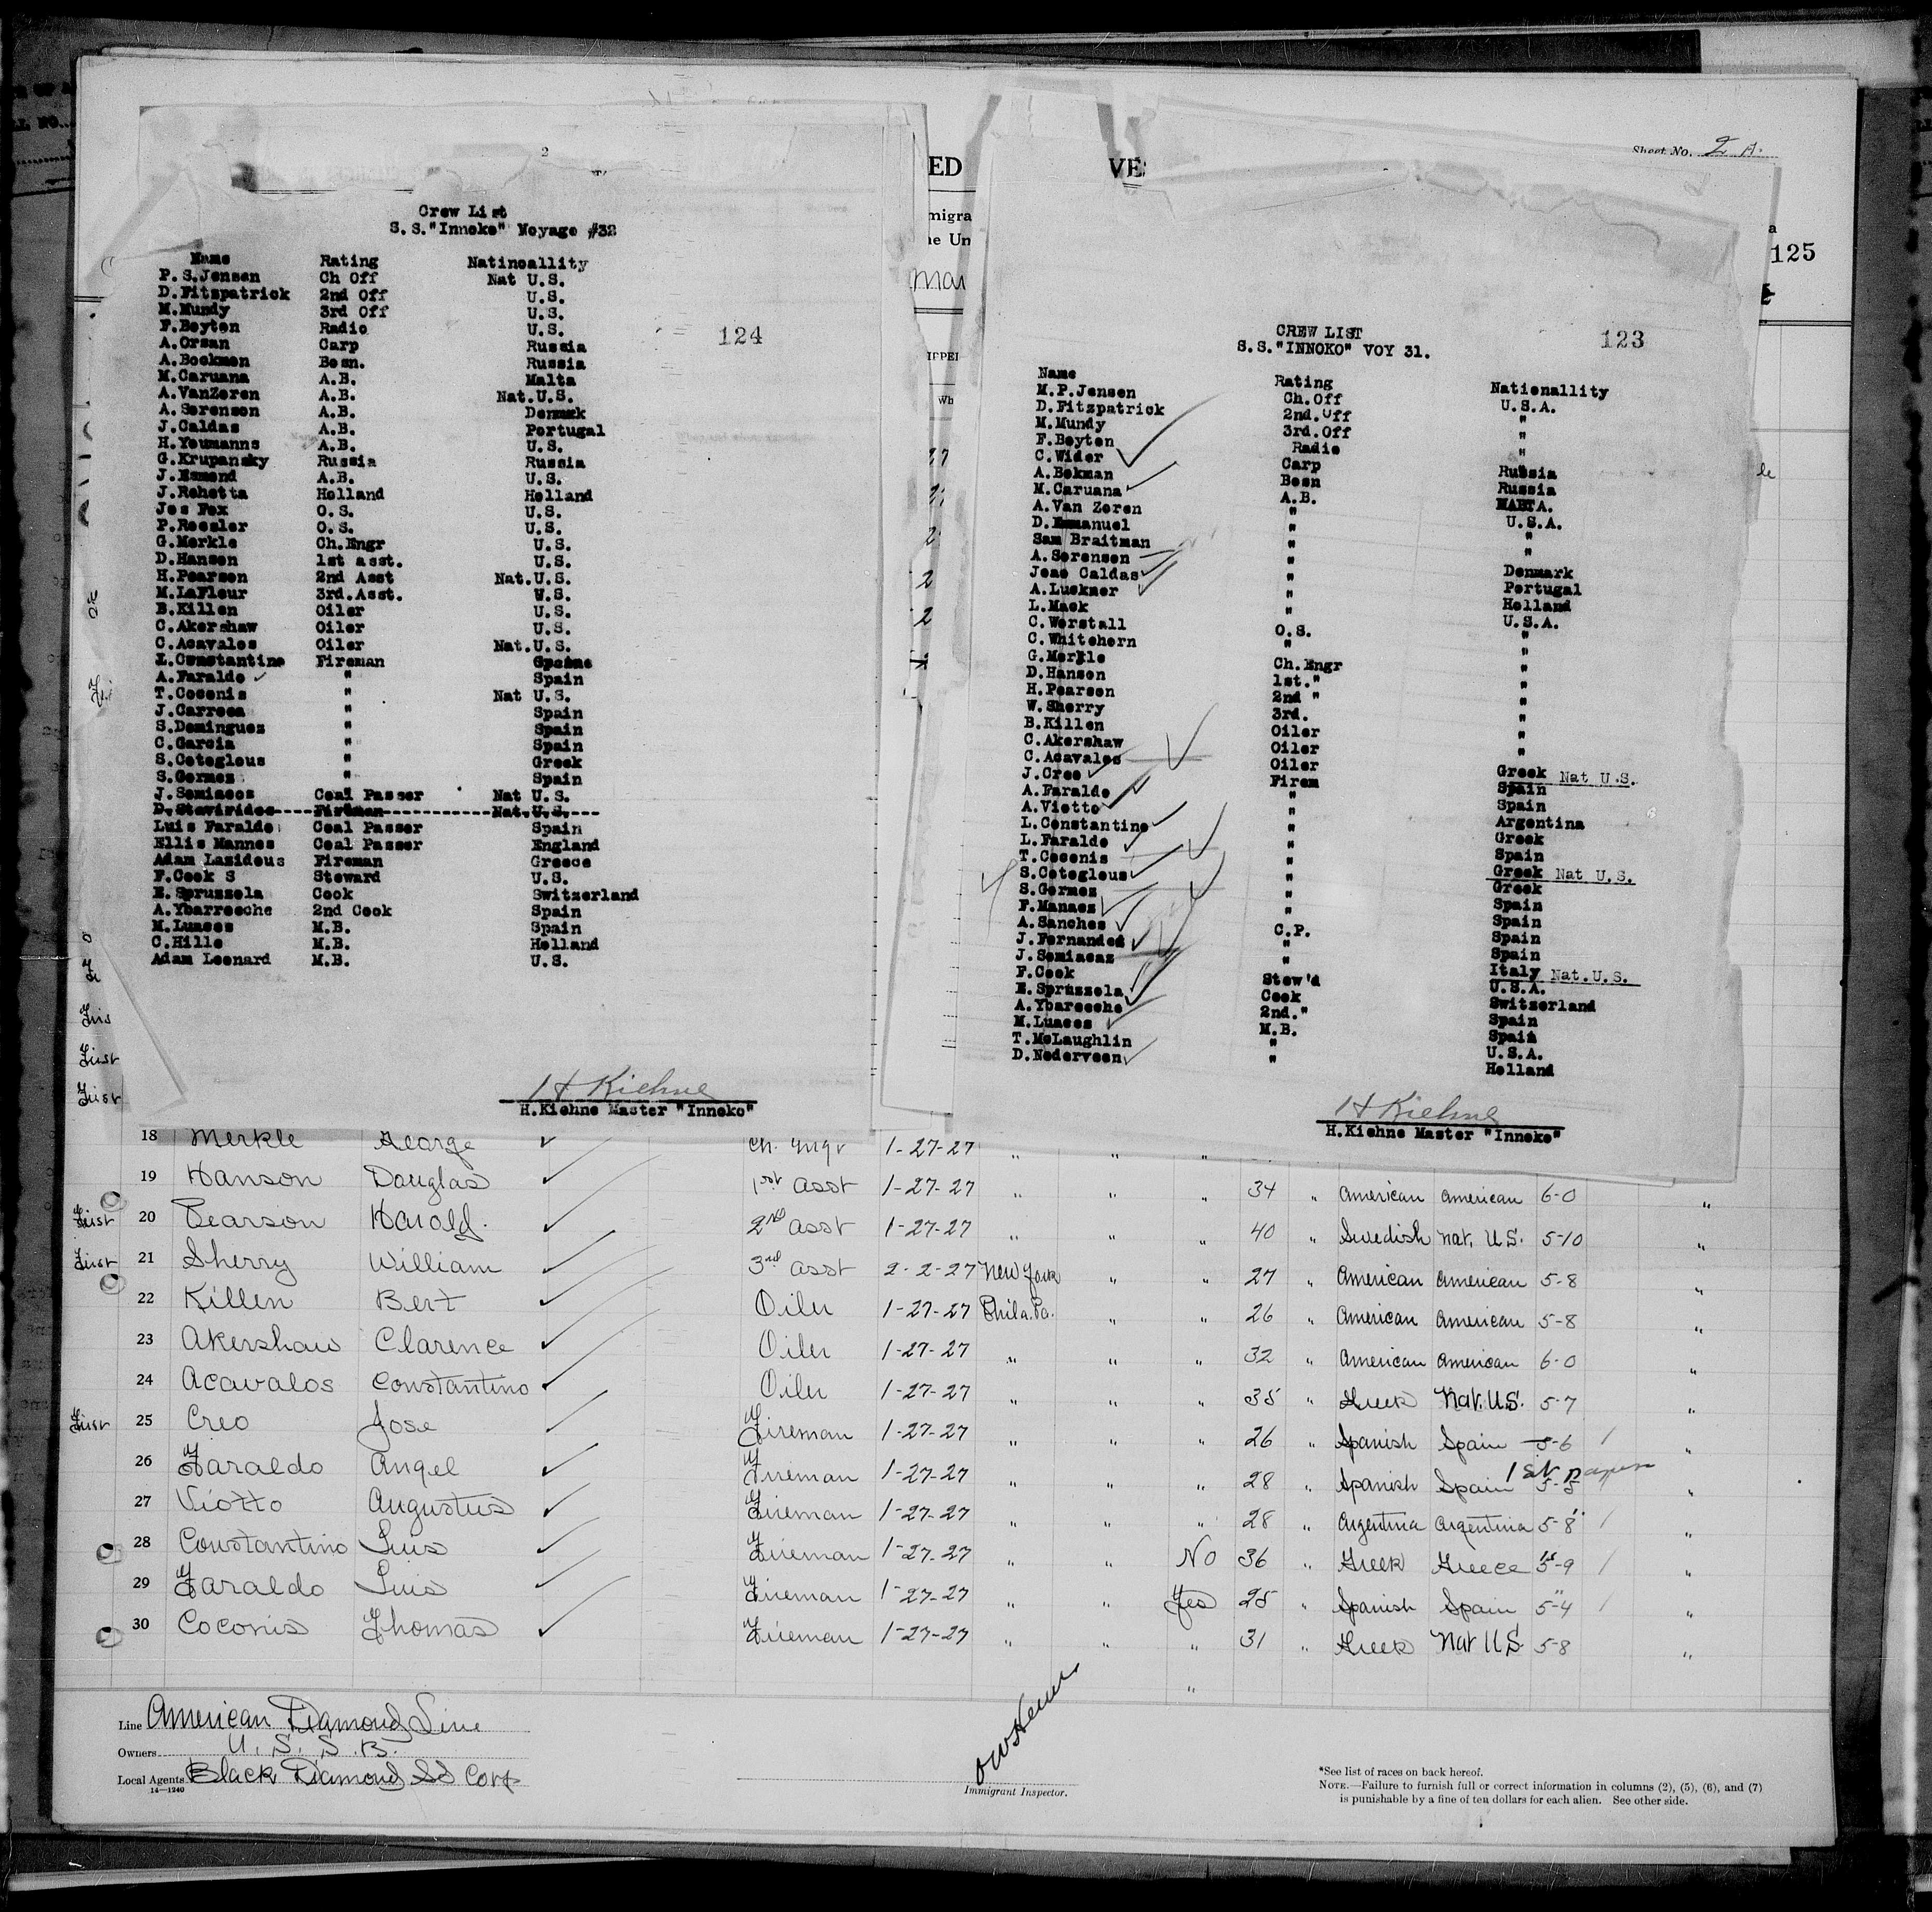 2
Crew List
S.S."Inneke" Voyage #32
124
Name Rating Natinoallity
P.S.Jensen Ch Off Nat U.S.
D.Fitzpatrick 2nd Off U.S.
M.Mundy 3rd Off U.S.
F.Beyten Radio U.S.
A.Orsan Carp Russia
A.Boekmen Bosn. Russia
M.Caruana A.B. Malta
A.VanZeren A.B. Nat.U.S.
A.Sorenson A.B. Denmark
J.Caldas A.B. Portugal
H.Youmanns A.B. U.S.
G.Krupansky Russia Russia
J.Esmond A.B. U.S.
J.Rehetta Holland Holland
Jos Fox O.S. U.S.
P.Roesler O.S. U.S.
G.Merkle Ch.Engr U.S.
D.Hansen 1st asst. U.S.
H.Pearson 2nd Asst Nat.U.S.
M.LaFleur 3rd.Asst. U.S.
B.Killen Oiler U.S.
C.Akershaw Oiler U.S.
C.Acavalos Oiler Nat.U.S.
L.Constantine Fireman
A.Faralde " Spain
T.Coconis " Nat U.S.
J.Carreea " Spain
S.Dominguez " Spain
C.Garcia " Spain
S.Coteglous " Greek
S.Gormes " Spain
J.Semiaees Coal Passer Nat U.S.
D.Stavirides Fireman Nat.U.S.
Luis Faralde Coal Passer Spain
Ellis Mannes Coal Passer England
Adam Lazideus Fireman Greece
F.Cook S Steward U.S.
E.Spruzzela Cook Switzerland
A.Ybarreeche 2nd Cook Spain
M.Luaces M.B. Spain
C.Hille M.B. Holland
Adam Leonard M.B. U.S.
H Kiehne
H.Kiehne Master "Inneke"
ED VES
migra
he Un
Sheet No. 2 A.
125
123
CREW LIST
S.S."INNOKO" VOY 31.
Name Rating Nationallity
M.P.Jensen Ch.Off U.S.A.
D.Fitzpatrick 2nd.Off "
M.Mundy 3rd.Off "
F.Beyten Radio "
C.Wider Carp Russia
A.Bekman Bosn Russia
M.Caruana A.B. MALTA.
A.Van Zeren " U.S.A.
D.Emmanuel " "
Sam Braitman " "
A.Sorensen " Denmark
Joao Caldas " Portugal
A.Luekner " Holland
L.Mack " U.S.A.
C.Worstall O.S. "
C.Whitehorn " "
G.Merkle Ch.Engr "
D.Hansen 1st." "
H.Pearson 2nd " "
W.Sherry 3rd. "
B.Killen Oiler "
C.Akershaw Oiler "
C.Acavalos Oiler Greek Nat U.S.
J.Creo Firem Spain
A.Faralde " Spain
A.Viotto " Argentina
L.Constantine " Greek
L.Faralde " Spain
T.Coconis " Greek Nat U.S.
S.Coteglous " Greek
S.Gormes " Spain
F.Manaez " Spain
A.Sanches C.P. Spain
J.Fernandez " Spain
J.Semiaeaz " Italy Nat.U.S.
F.Cook Stew'd U.S.A.
E.Spruzzela Cook Switzerland
A.Ybareeche 2nd." Spain
M.Luaces M.B. Spain
T.McLaughlin " U.S.A.
D.Nederveen " Holland
H Kiehne
H.Kiehne Master "Inneke"
18 Merkle George Ch. Engr 1-27-27 " " "
19 Hanson Douglas 1st asst 1-27-27 " " " 34 " American American 6-0 "
First 20 Pearson Harold. 2nd asst 1-27-27 " " " 40 " Swedish Nat. U.S. 5-10 "
First 21 Sherry William 3rd asst 2-2-27 New York " " 27 " American American 5-8 "
22 Killen Bert Oiler 1-27-27 Phila. Pa. " " 26 " American American 5-8 "
23 Akershaw Clarence Oiler 1-27-27 " " " 32 " American American 6-0 "
24 Acavalos Constantino Oiler 1-27-27 " " " 35 " Greek Nat. U.S. 5-7 "
First 25 Creo Jose Fireman 1-27-27 " " " 26 " Spanish Spain 5-6 "
26 Faraldo Angel Fireman 1-27-27 " " " 28 " Spanish Spain 5-5 1st papers "
27 Viotto Augustus Fireman 1-27-27 " " " 28 " Argentina Argentina 5-8 "
28 Constantino Luis Fireman 1-27-27 " " No 36 " Greek Greece 5-9 "
29 Faraldo Luis Fireman 1-27-27 " " Yes 25 " Spanish Spain 5-4 "
30 Coconis Thomas Fireman 1-27-27 " " " 31 " Greek Nat U.S. 5-8 "
Line American Diamond Line
Owners U. S. S. B.
Local Agents Black Diamond SS Corp
14—1240
Immigrant Inspector.
*See list of races on back hereof.
NOTE.—Failure to furnish full or correct information in columns (2), (5), (6), and (7)
is punishable by a fine of ten dollars for each alien. See other side.